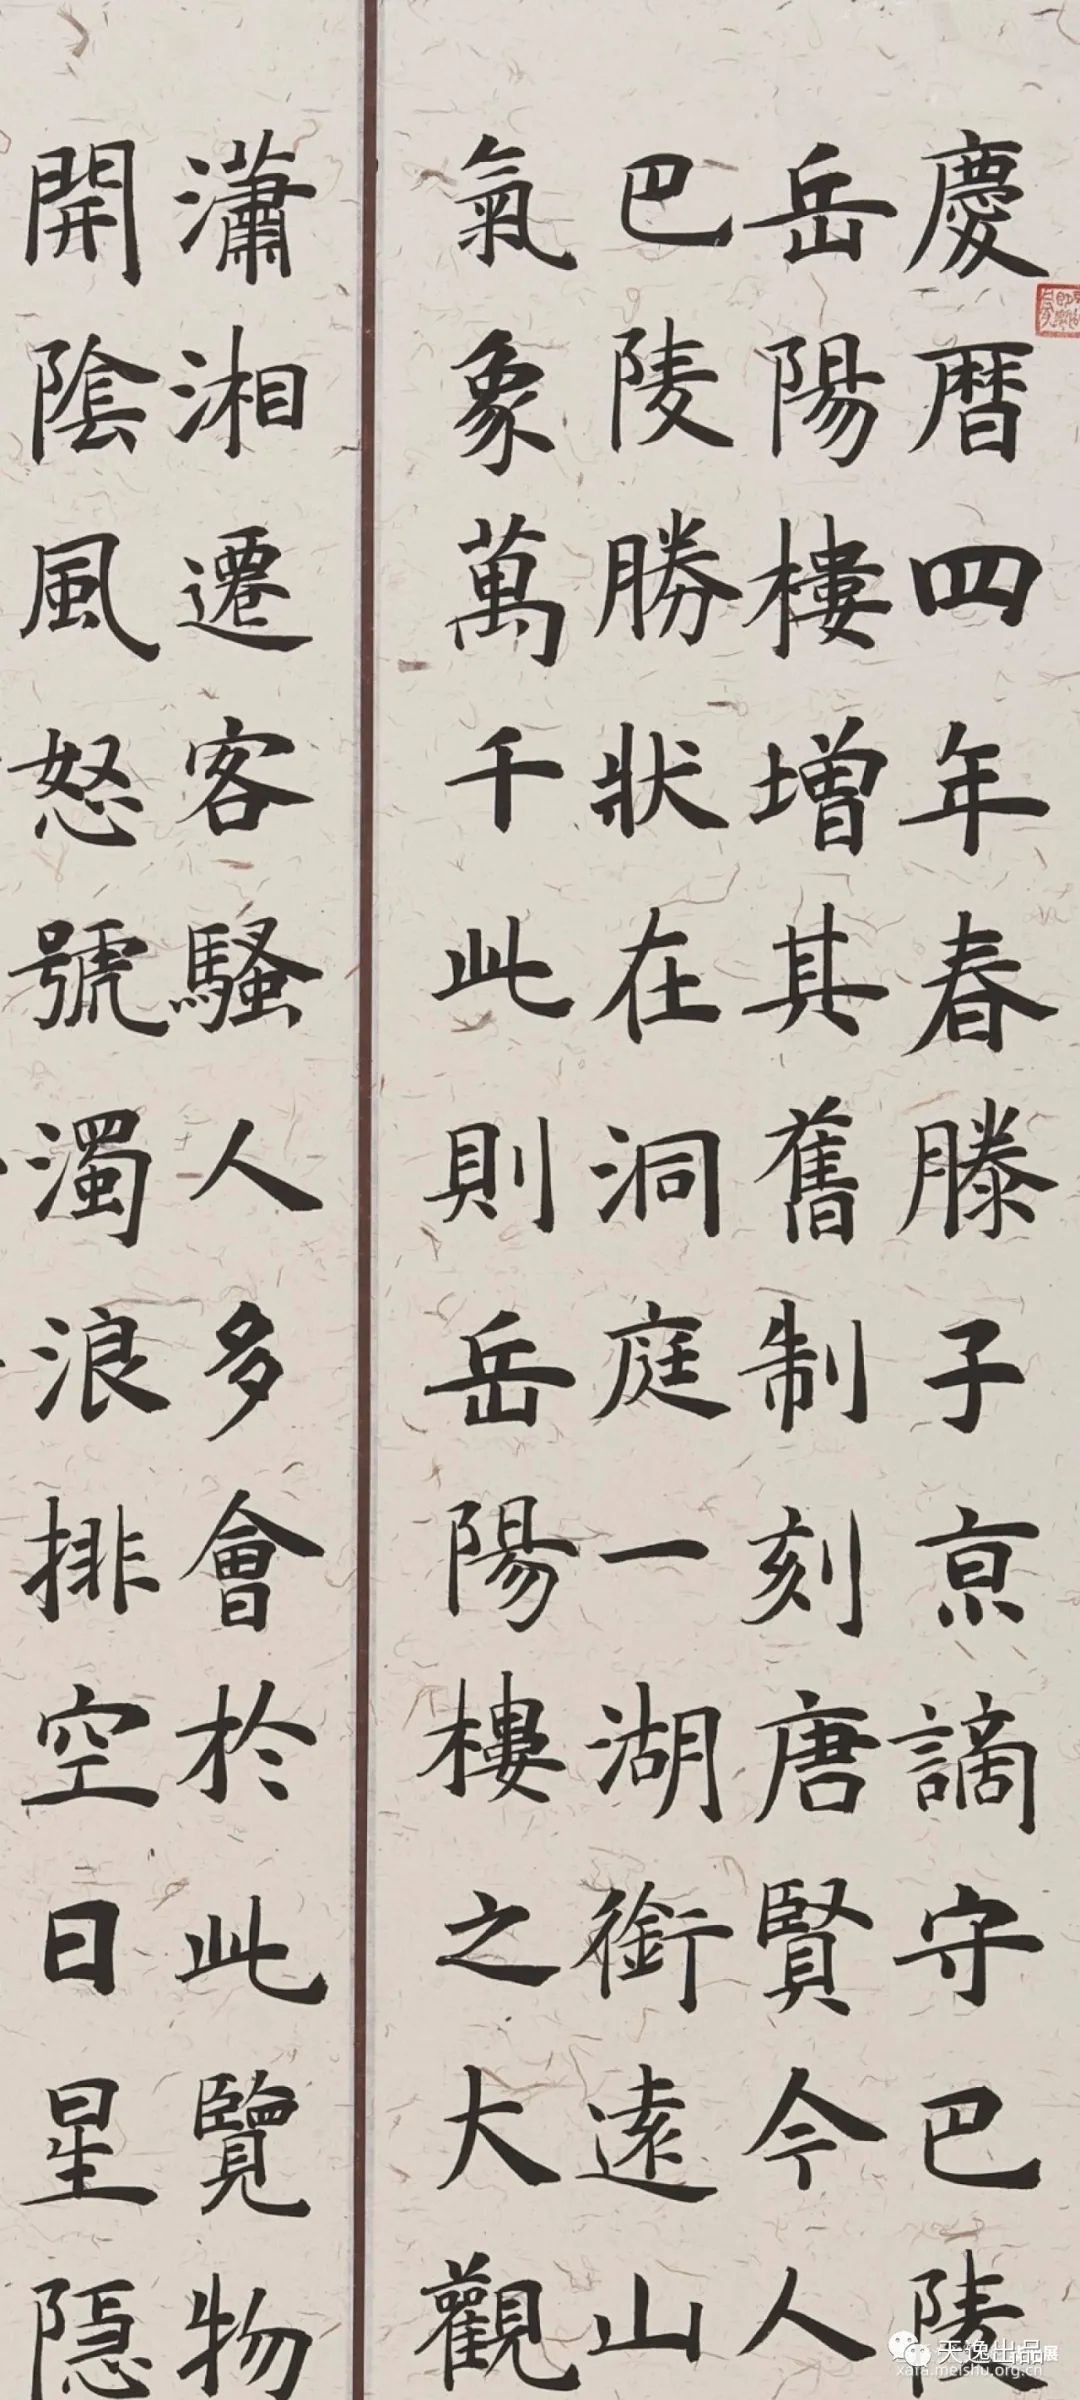 慶曆四年春滕子京謫守巴陵
岳陽樓增其舊制刻唐賢今人
巴陵勝狀在洞庭一湖銜遠山
氣象萬千此則岳陽樓之大觀
瀟湘遷客騷人多會於此覽物
開陰風怒號濁浪排空日星隱
天逸出品
xafa.meishu.org.cn